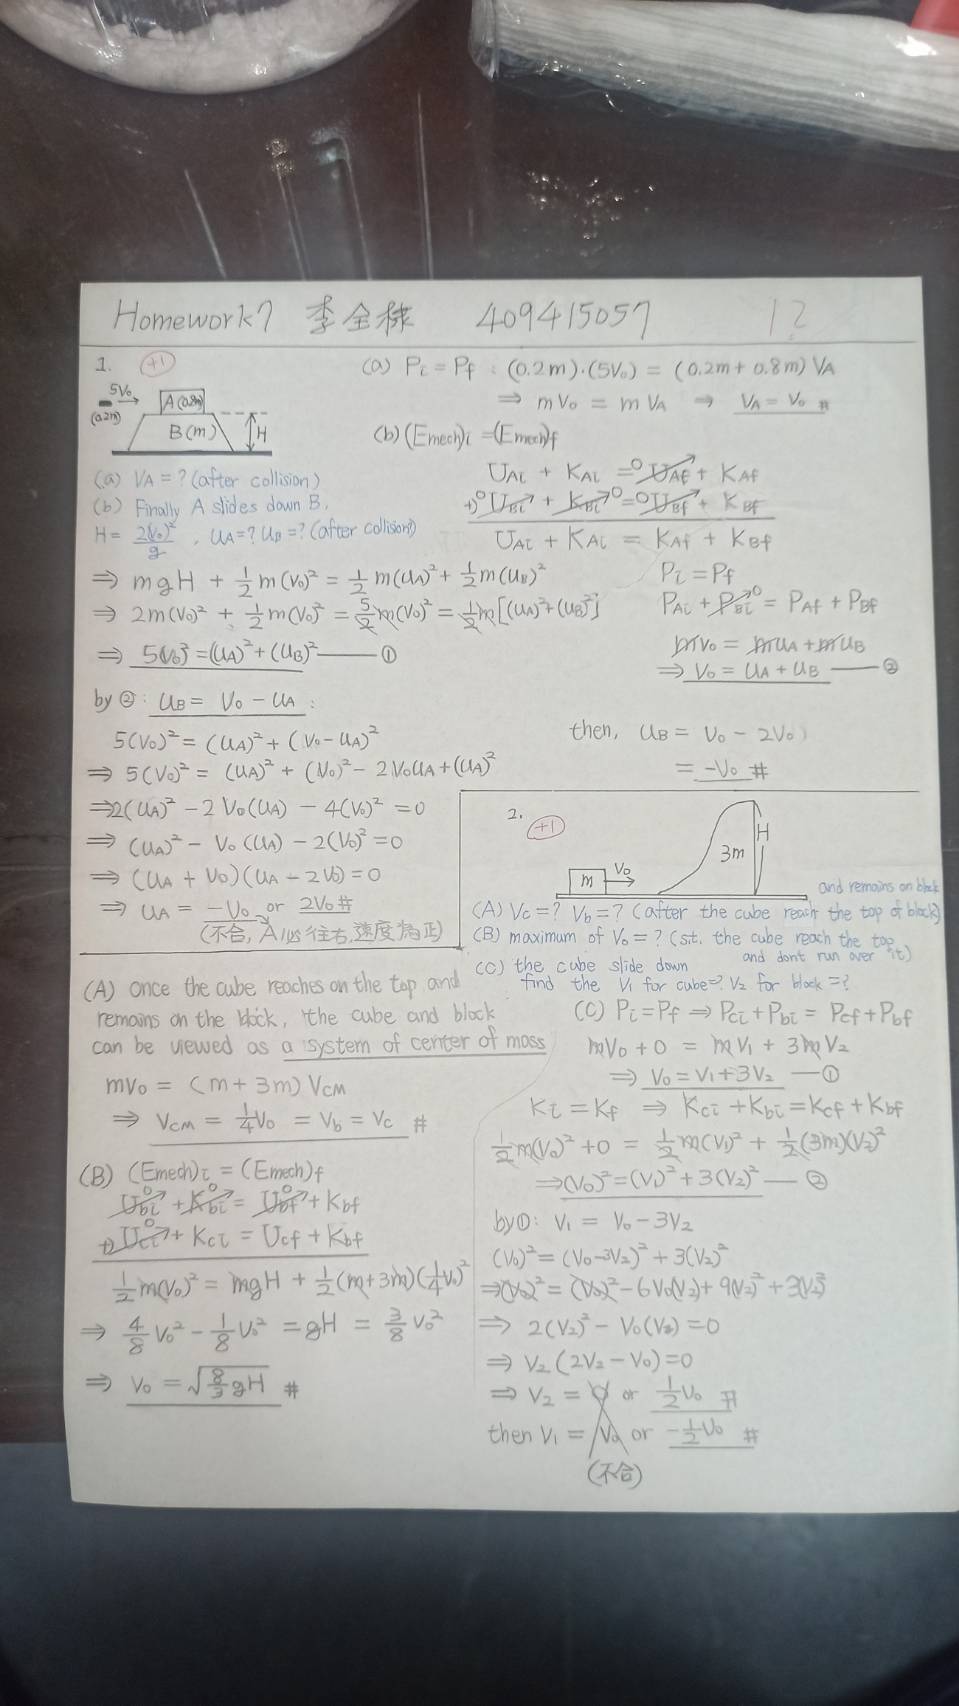 Homework7 李全 409415057 12
1. +1
5V₀
(0.2m)
A(0.8m)
B(m)
H
(a) VA = ? (after collision)
(b) Finally A slides down B,
H = 2(V₀)²/g , uA=? uB=? (after collision)
(a) Pi = Pf : (0.2m)·(5V₀) = (0.2m + 0.8m) VA
⇒ mV₀ = mVA ⇒ VA = V₀ #
(b) (Emech)i = (Emech)f
UAi + KAi = UAf + KAf
+) UBi + KBi = UBf + KBf
UAi + KAi = KAf + KBf
⇒ mgH + 1/2 m(V₀)² = 1/2 m(uA)² + 1/2 m(uB)²
⇒ 2m(V₀)² + 1/2 m(V₀)² = 5/2 m(V₀)² = 1/2 m[(uA)²+(uB)²]
⇒ 5(V₀)² = (uA)² + (uB)² — ①
Pi = Pf
PAi + PBi = PAf + PBf
mV₀ = muA + muB
⇒ V₀ = uA + uB — ②
by ② : uB = V₀ - uA :
5(V₀)² = (uA)² + (V₀-uA)²
⇒ 5(V₀)² = (uA)² + (V₀)² - 2V₀uA + (uA)²
⇒ 2(uA)² - 2V₀(uA) - 4(V₀)² = 0
⇒ (uA)² - V₀(uA) - 2(V₀)² = 0
⇒ (uA + V₀)(uA - 2V₀) = 0
⇒ uA = -V₀ or 2V₀ #
(不合, A必往右, 速度為正)
then, uB = V₀ - 2V₀
= -V₀ #
2. +1
m
V₀
3m
H
(A) Vc = ? Vb = ? (after the cube reach the top of block and remains on block)
(B) maximum of V₀ = ? (s.t. the cube reach the top and don't run over it)
(C) the cube slide down
find the V₁ for cube=? V₂ for block=?
(A) once the cube reaches on the top and
remains on the block, the cube and block
can be viewed as a system of center of mass
mV₀ = (m + 3m) VCM
⇒ VCM = 1/4 V₀ = Vb = Vc #
(B) (Emech)i = (Emech)f
Ubi + Kbi = Ubf + Kbf
+) Uci + Kci = Ucf + Kbf
1/2 m(V₀)² = mgH + 1/2 (m+3m)(1/4 V₀)²
⇒ 4/8 V₀² - 1/8 V₀² = gH = 3/8 V₀²
⇒ V₀ = √(8/3 gH) #
(C) Pi = Pf ⇒ Pci + Pbi = Pcf + Pbf
mV₀ + 0 = mV₁ + 3mV₂
⇒ V₀ = V₁ + 3V₂ — ①
Ki = Kf ⇒ Kci + Kbi = Kcf + Kbf
1/2 m(V₀)² + 0 = 1/2 m(V₁)² + 1/2 (3m)(V₂)²
⇒ (V₀)² = (V₁)² + 3(V₂)² — ②
by ① : V₁ = V₀ - 3V₂
(V₀)² = (V₀-3V₂)² + 3(V₂)²
⇒ (V₀)² = (V₀)² - 6V₀(V₂) + 9(V₂)² + 3(V₂)²
⇒ 2(V₂)² - V₀(V₂) = 0
⇒ V₂(2V₂ - V₀) = 0
⇒ V₂ = 0 or 1/2 V₀ #
then V₁ = V₀ or -1/2 V₀ #
(不合)